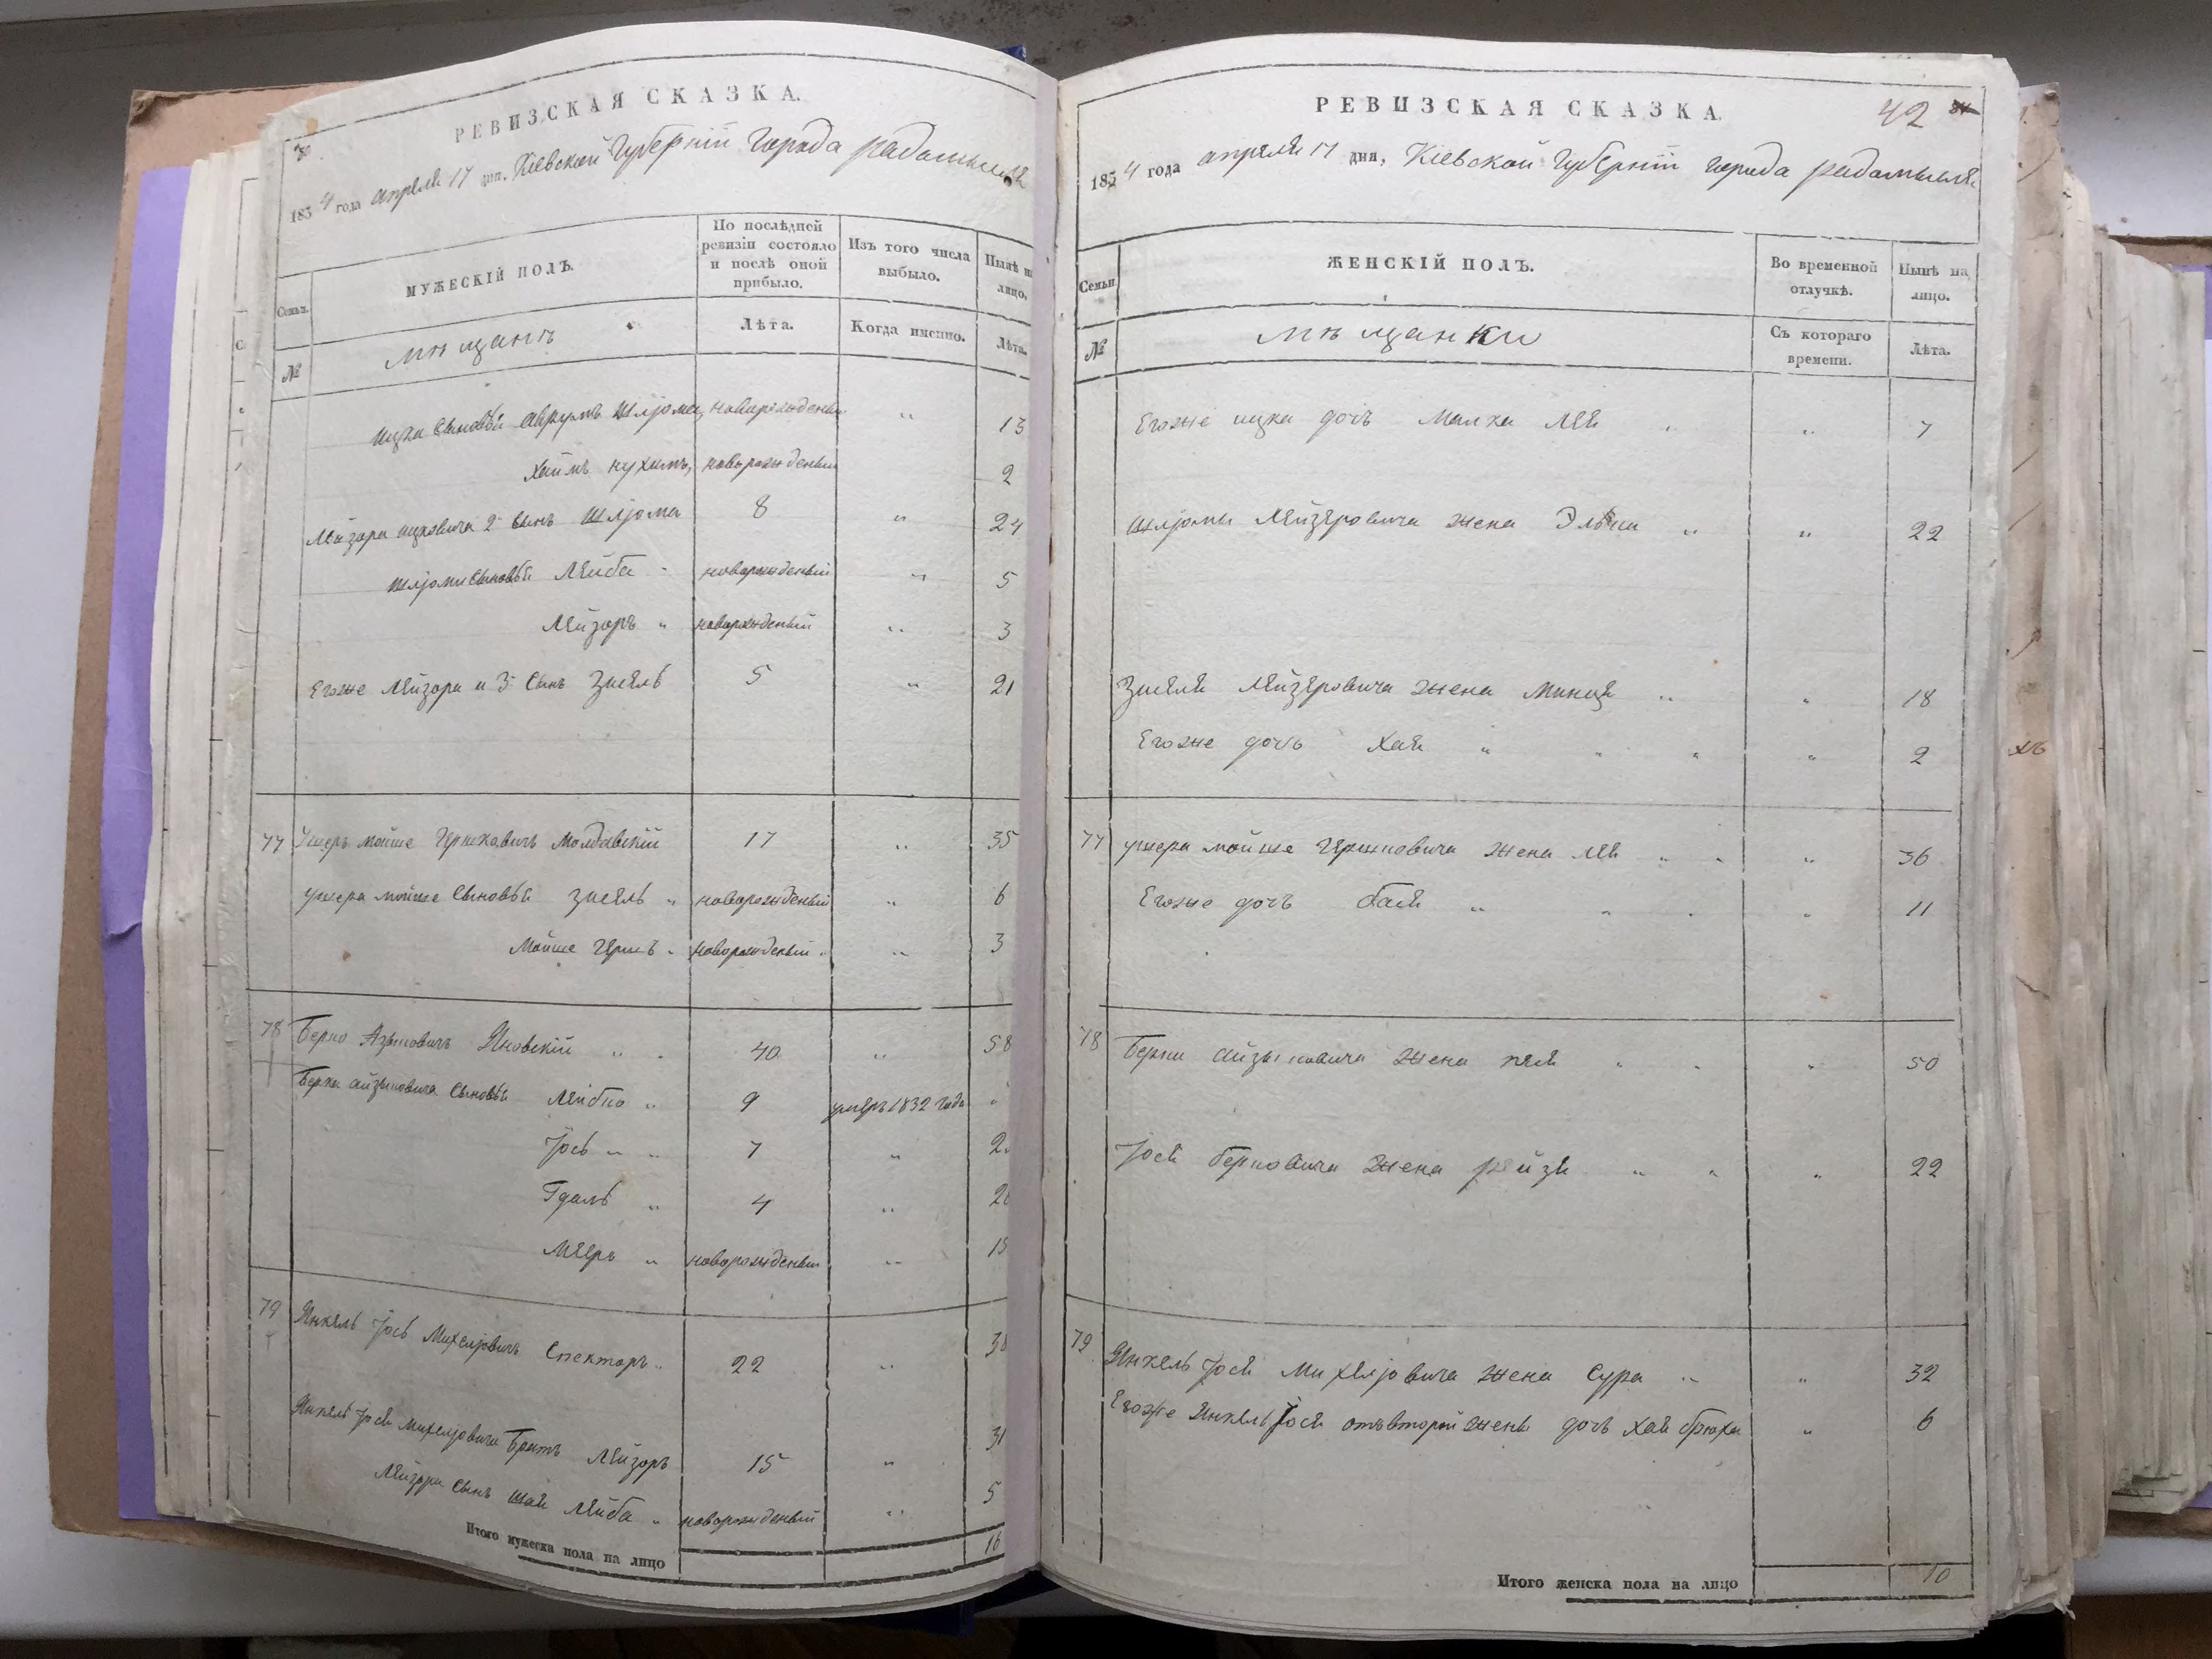 РЕВИЗСКАЯ СКАЗКА.
1834 года апреля 17 дня, Кіевской Губерніи города радомысля
Семьи.
МУЖЕСКІЙ ПОЛЪ.
По послѣдней ревизіи состояло и послѣ оной прибыло.
Изъ того числа выбыло.
Нынѣ на лицо.
№
мѣщанъ
Лѣта.
Когда именно.
Лѣта.
ицка сыновьи Аврумъ Шліома, новорожденый " 13
Хаимъ нухимъ, новорожденый 2
Лейзора ицковича 2 сынъ Шліома 8 " 24
шліоми сыновьи Лейба " новорожденый " 5
Лейзоръ " новорожденый " 3
Егоже Лейзора и 3 сынъ Зисель 5 " 21
77 Ушеръ мойше Гершковичъ Молдавскій 17 " 35
ушера мойше сыновьи зисель " новорожденый " 6
Мойше Гершъ " новорожденый " 3
78 Берко Айзиковичъ Яновскій " 40 " 58
Берка айзиковича сыновьи Лейбко " 9 умеръ 1832 года "
Іось " " 7 "
Гдаль " 4 "
Мееръ " новорожденый "
79 Янкель Іось Михелювичъ Спекторъ " 22 "
Янкель Іося михелювича Братъ Лейзоръ 15 " 31
Лейзора сынъ шая Лейба " новорожденый " 5
Итого мужеска пола на лицо 16
РЕВИЗСКАЯ СКАЗКА.
42
1834 года апреля 17 дня, Кіевской Губерніи города радомысля
Семьи
ЖЕНСКІЙ ПОЛЪ.
Во временной отлучкѣ.
Нынѣ на лицо.
№
мѣщанки
Съ котораго времени.
Лѣта.
Егоже ицка дочь Малка Лея " " 7
шліомы Лейзеровича жена Элька " " 22
Зиселя Лейзеровича жена Минця " " 18
Егоже дочь Хая " " " " 2
77 ушера мойше Гершковича жена Лея " " " 36
Егоже дочь бася " " " " 11
78 Берки айзиковича жена пея " " " 50
Іося берковича жена рейзя " " " 22
79 Янкель Іося Михелювича жена Сура " " 32
Егоже Янкель Іося отъ второй жены дочь Хая брюха " 6
Итого женска пола на лицо 10